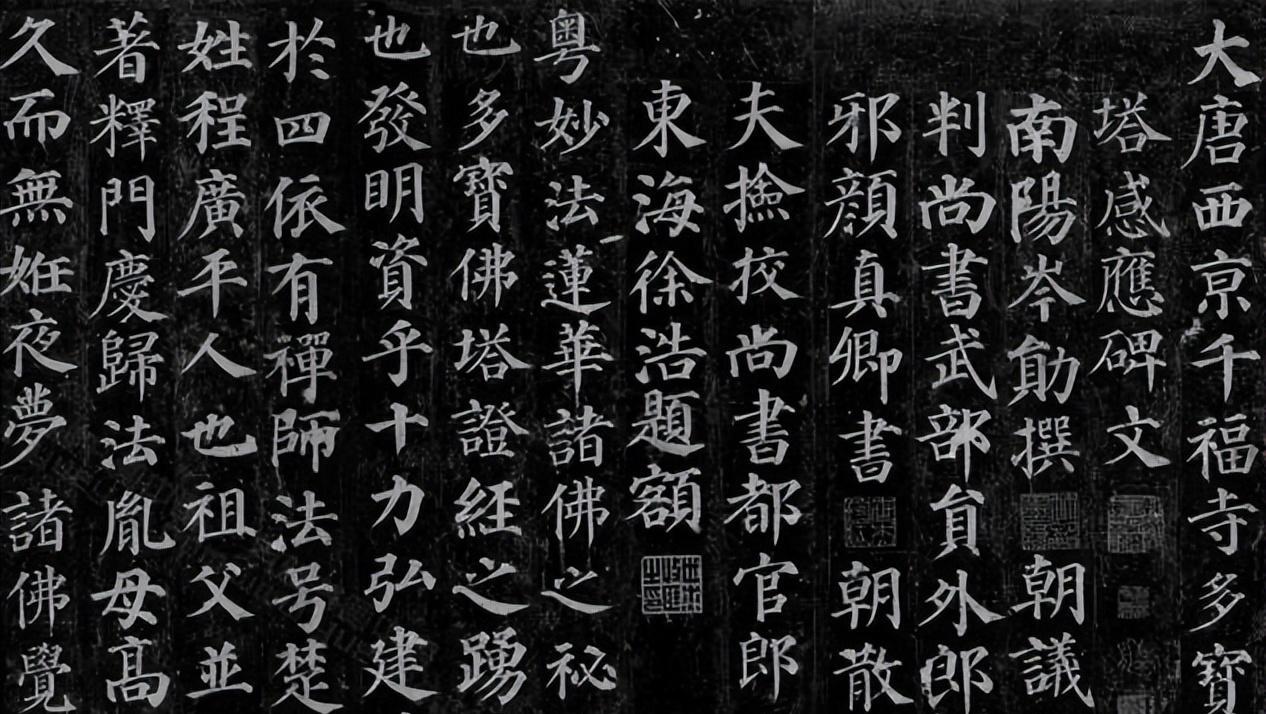 大唐西京千福寺多寶
塔感應碑文
南陽岑勛撰朝議
判尚書武部員外郎
邪顏真卿書朝散
夫撿挍尚書都官郎
東海徐浩題額
粵妙法蓮華諸佛之祕
也多寶佛塔證經之踴
也發明資乎十力弘建
於四依有禪師法号楚
姓程廣平人也祖父並
著釋門慶歸法胤母高
久而無姙夜夢諸佛覺